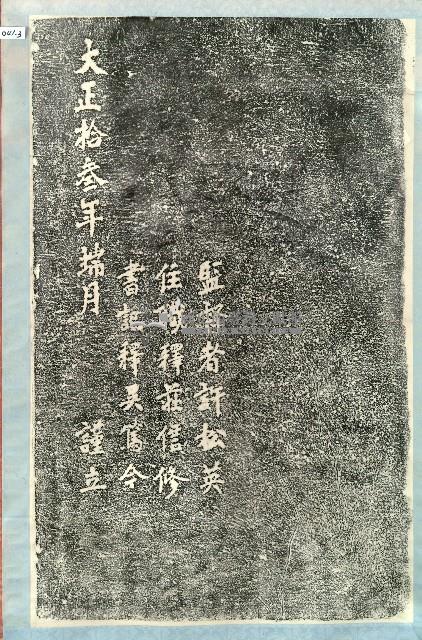 監督者許松英
住持釋莊信修
書記釋吳今
大正拾叁年端月 謹立
041-3